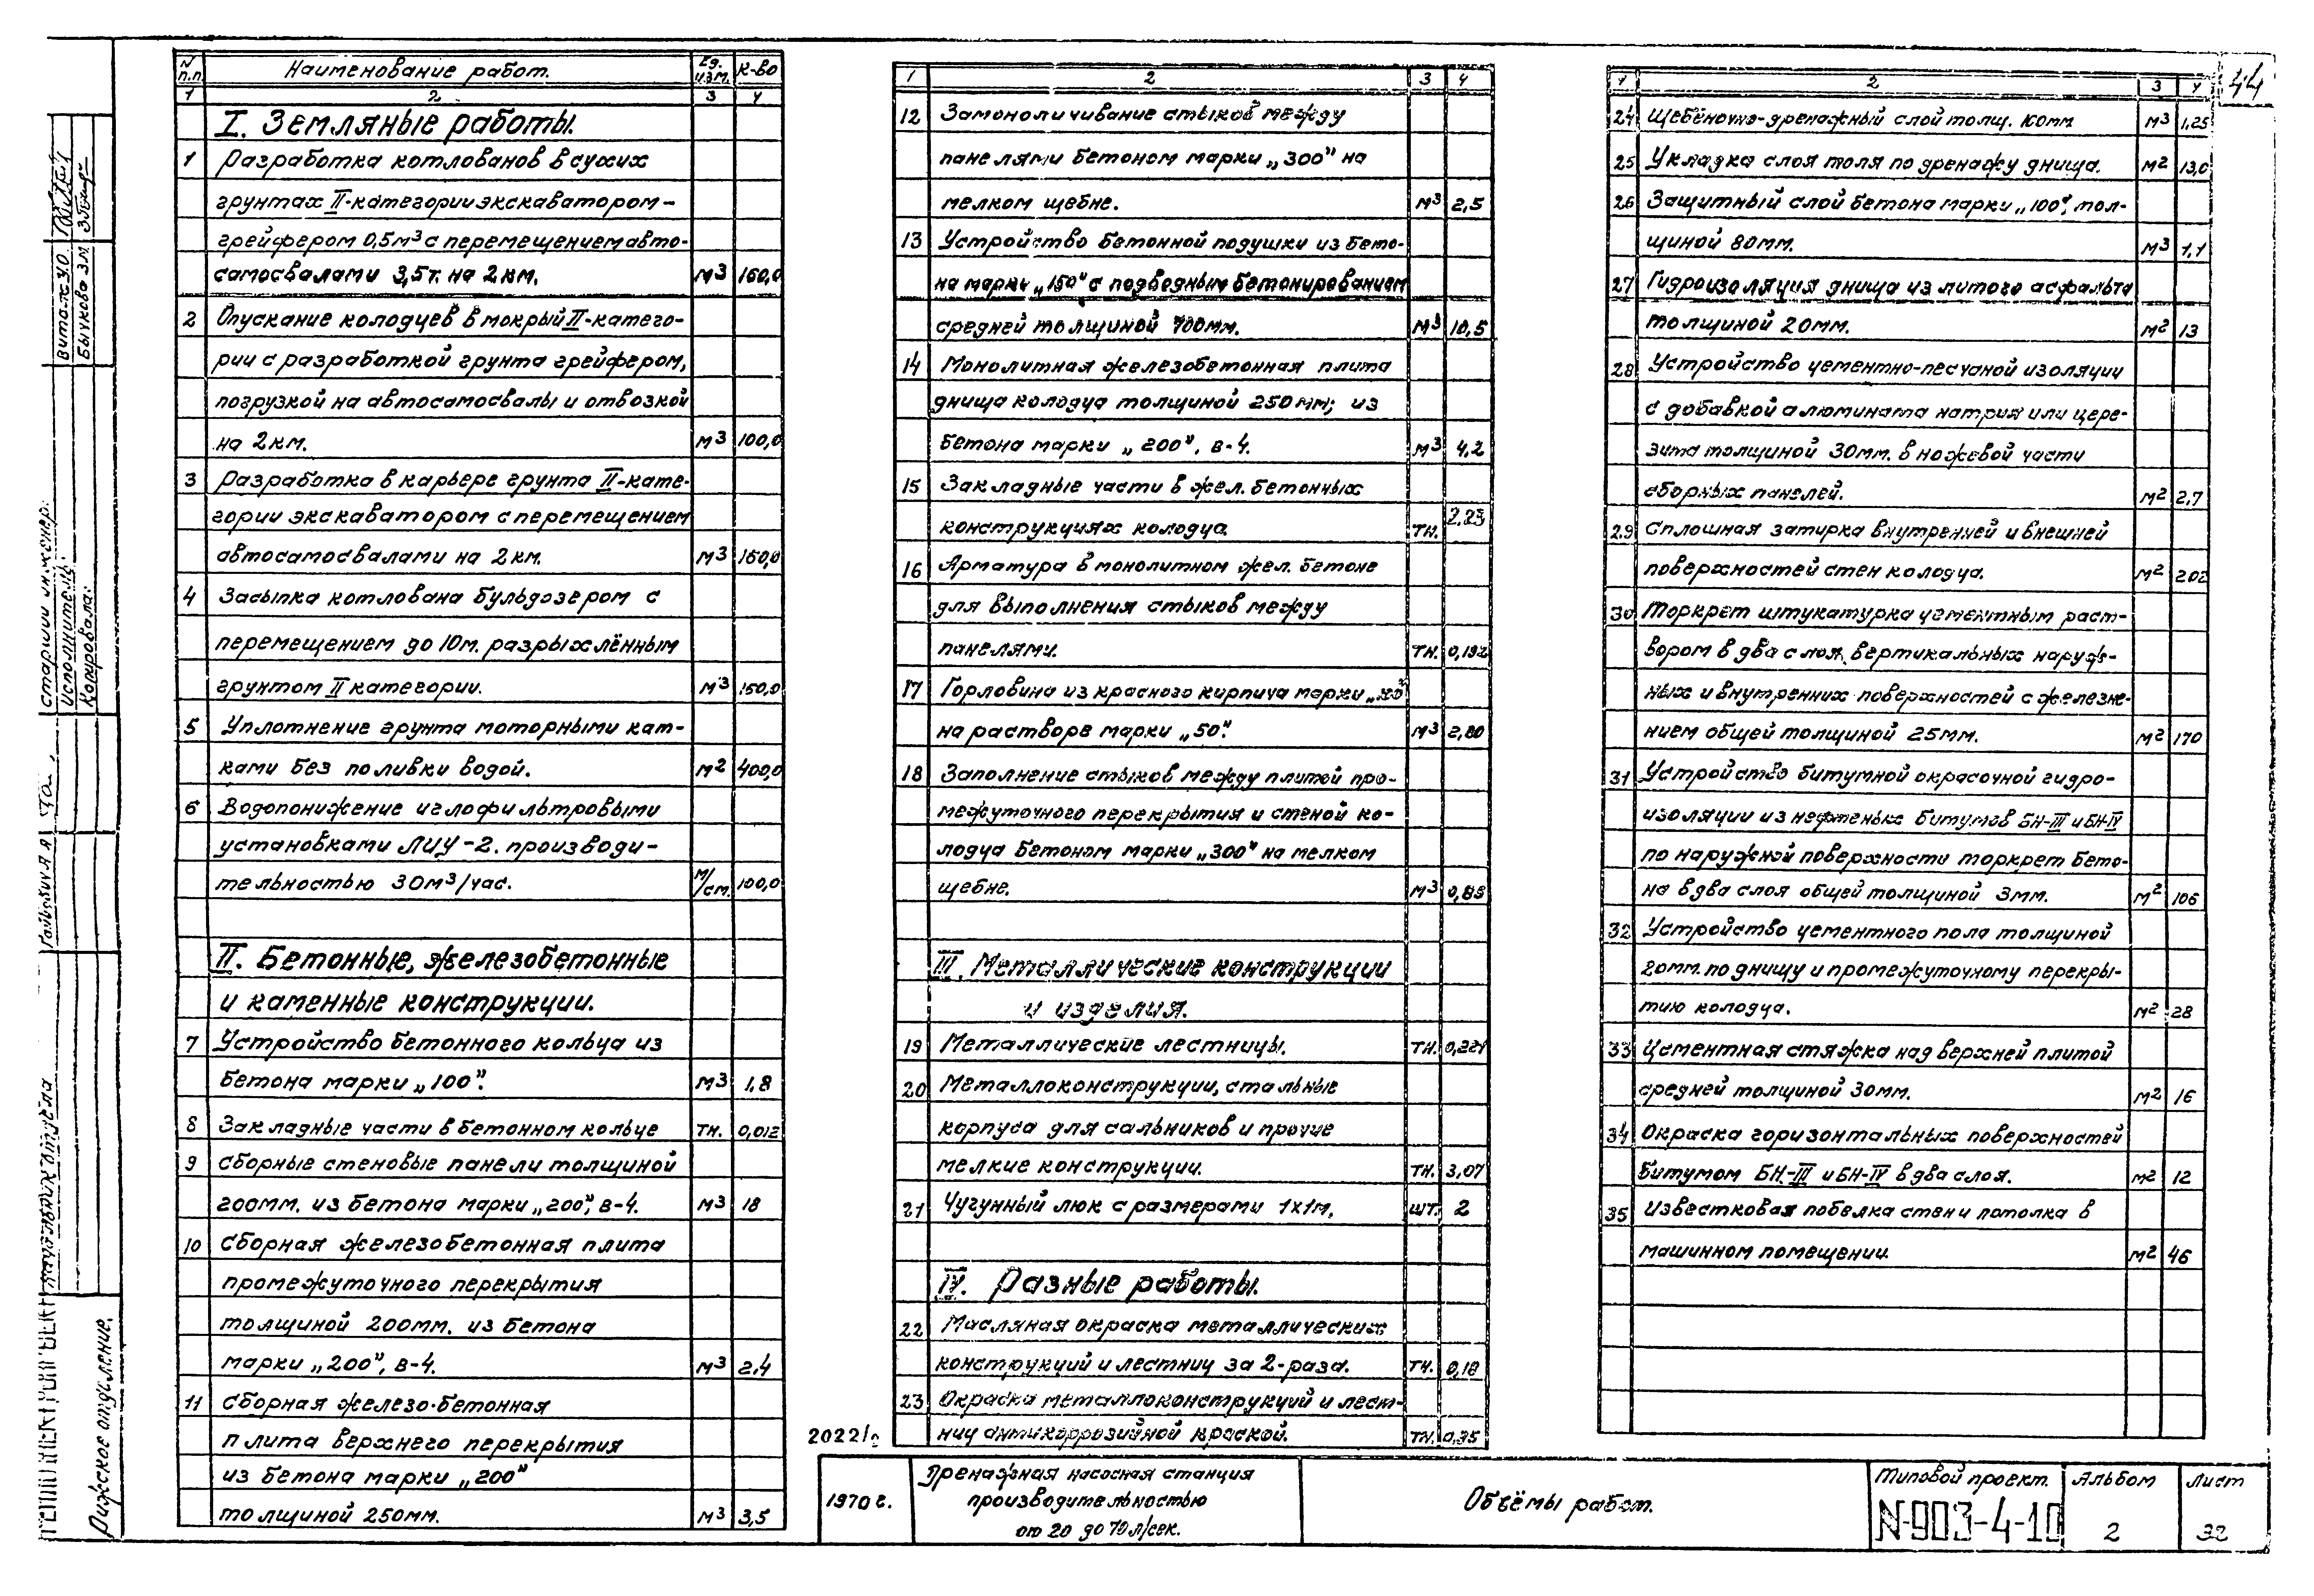 44
N п.п. Наименование работ. Ед. изм. К-во
1 2 3 4
I. Земляные работы.
1 Разработка котлованов в сухих
грунтах II-категории экскаватором-
грейфером 0,5м³ с перемещением авто-
самосвалами 3,5т. на 2км. м³ 160,0
2 Опускание колодцев в мокрый II-катего-
рии с разработкой грунта грейфером,
погрузкой на автосамосвалы и отвозкой
на 2км. м³ 100,0
3 Разработка в карьере грунта II-кате-
гории экскаватором с перемещением
автосамосвалами на 2км. м³ 160,0
4 Засыпка котлована бульдозером с
перемещением до 10м. разрыхлённым
грунтом II категории. м³ 160,0
5 Уплотнение грунта моторными кат-
ками без поливки водой. м² 400,0
6 Водопонижение иглофильтровыми
установками ЛИУ-2. производи-
тельностью 30м³/час. м/см. 100,0
II. Бетонные, железобетонные
и каменные конструкции.
7 Устройство бетонного кольца из
бетона марки „100". м³ 1,8
8 Закладные части в бетонном кольце тн. 0,012
9 Сборные стеновые панели толщиной
200мм. из бетона марки „200", в-4. м³ 18
10 Сборная железобетонная плита
промежуточного перекрытия
толщиной 200мм. из бетона
марки „200", в-4. м³ 2,4
11 Сборная железо-бетонная
плита верхнего перекрытия
из бетона марки „200"
толщиной 250мм. м³ 3,5
1 2 3 4
12 Замоноличивание стыков между
панелями бетоном марки „300" на
мелком щебне. м³ 2,5
13 Устройство бетонной подушки из бето-
на марки „150" с подводным бетонированием
средней толщиной 700мм. м³ 10,5
14 Монолитная железобетонная плита
днища колодца толщиной 250мм; из
бетона марки „200", в-4. м³ 4,2
15 Закладные части в жел. бетонных
конструкциях колодца. тн. 2,23
16 Арматура в монолитном жел. бетоне
для выполнения стыков между
панелями. тн. 0,192
17 Горловина из красного кирпича марки
на растворе марки „50". м³ 2,80
18 Заполнение стыков между плитой про-
межуточного перекрытия и стеной ко-
лодца бетоном марки „300" на мелком
щебне. м³ 0,88
III. Металлические конструкции
и изделия.
19 Металлические лестницы. тн. 0,221
20 Металлоконструкции, стальные
корпуса для сальников и прочие
мелкие конструкции. тн. 3,07
21 Чугунный люк с размерами 1х1м. шт. 2
IV. Разные работы.
22 Масляная окраска металлических
конструкций и лестниц за 2-раза. тн. 0,18
23 Окраска металлоконструкций и лест-
ниц антикоррозийной краской. тн. 0,35
1 2 3 4
24 Щебёночно-дренажный слой толщ. 100мм м³ 1,25
25 Укладка слоя толя по дренажу днища. м² 13,0
26 Защитный слой бетона марки „100", тол-
щиной 80мм. м³ 1,1
27 Гидроизоляция днища из литого асфальта
толщиной 20мм. м² 13
28 Устройство цементно-песчаной изоляции
с добавкой алюмината натрия или цере-
зита толщиной 30мм. в ножевой части
сборных панелей. м² 2,7
29 Сплошная затирка внутренней и внешней
поверхностей стен колодца. м² 202
30 Торкрет штукатурка цементным раст-
вором в два слоя, вертикальных наруж-
ных и внутренних поверхностей с железне-
нием общей толщиной 25мм. м² 170
31 Устройство битумной окрасочной гидро-
изоляции из нефтеных битумов БН-III и БН-IV
по наружной поверхности торкрет бето-
на в два слоя общей толщиной 3мм. м² 106
32 Устройство цементного пола толщиной
20мм. по днищу и промежуточному перекры-
тию колодца. м² 28
33 Цементная стяжка над верхней плитой
средней толщиной 30мм. м² 16
34 Окраска горизонтальных поверхностей
битумом БН-III и БН-IV в два слоя. м² 12
35 Известковая побелка стен и потолка в
машинном помещении. м² 46
2022/2
1970 г.
Дренажная насосная станция
производительностью
от 20 до 70 л/сек.
Объёмы работ.
Типовой проект.
N-903-4-10
Альбом
2
Лист
32
старший инженер.
Исполнитель:
Копировала:
Бычкова З.М.
Рижское отделение.